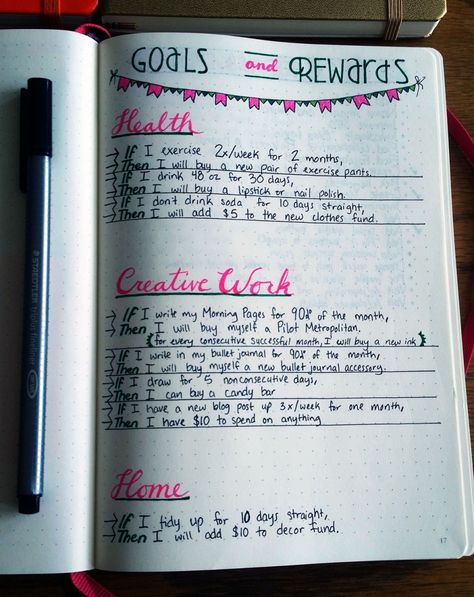 GOALS and REWARDS
Health
→ If I exercise 2x/week for 2 months,
→ Then I will buy a new pair of exercise pants.
→ If I drink 48 oz for 30 days,
→ Then I will buy a lipstick or nail polish.
→ If I don't drink soda for 10 days straight,
→ Then I will add $5 to the new clothes fund.
Creative Work
→ If I write my Morning Pages for 90% of the month,
→ Then I will buy myself a Pilot Metropolitan.
for every consecutive successful month, I will buy a new ink
→ If I write in my bullet journal for 90% of the month,
→ Then I will buy myself a new bullet journal accessory.
→ If I draw for 5 nonconsecutive days,
→ Then I can buy a candy bar
→ If I have a new blog post up 3x/week for one month,
→ Then I have $10 to spend on anything
Home
→ If I tidy up for 10 days straight,
→ Then I will add $10 to decor fund.
17
STAEDTLER triplus fineliner